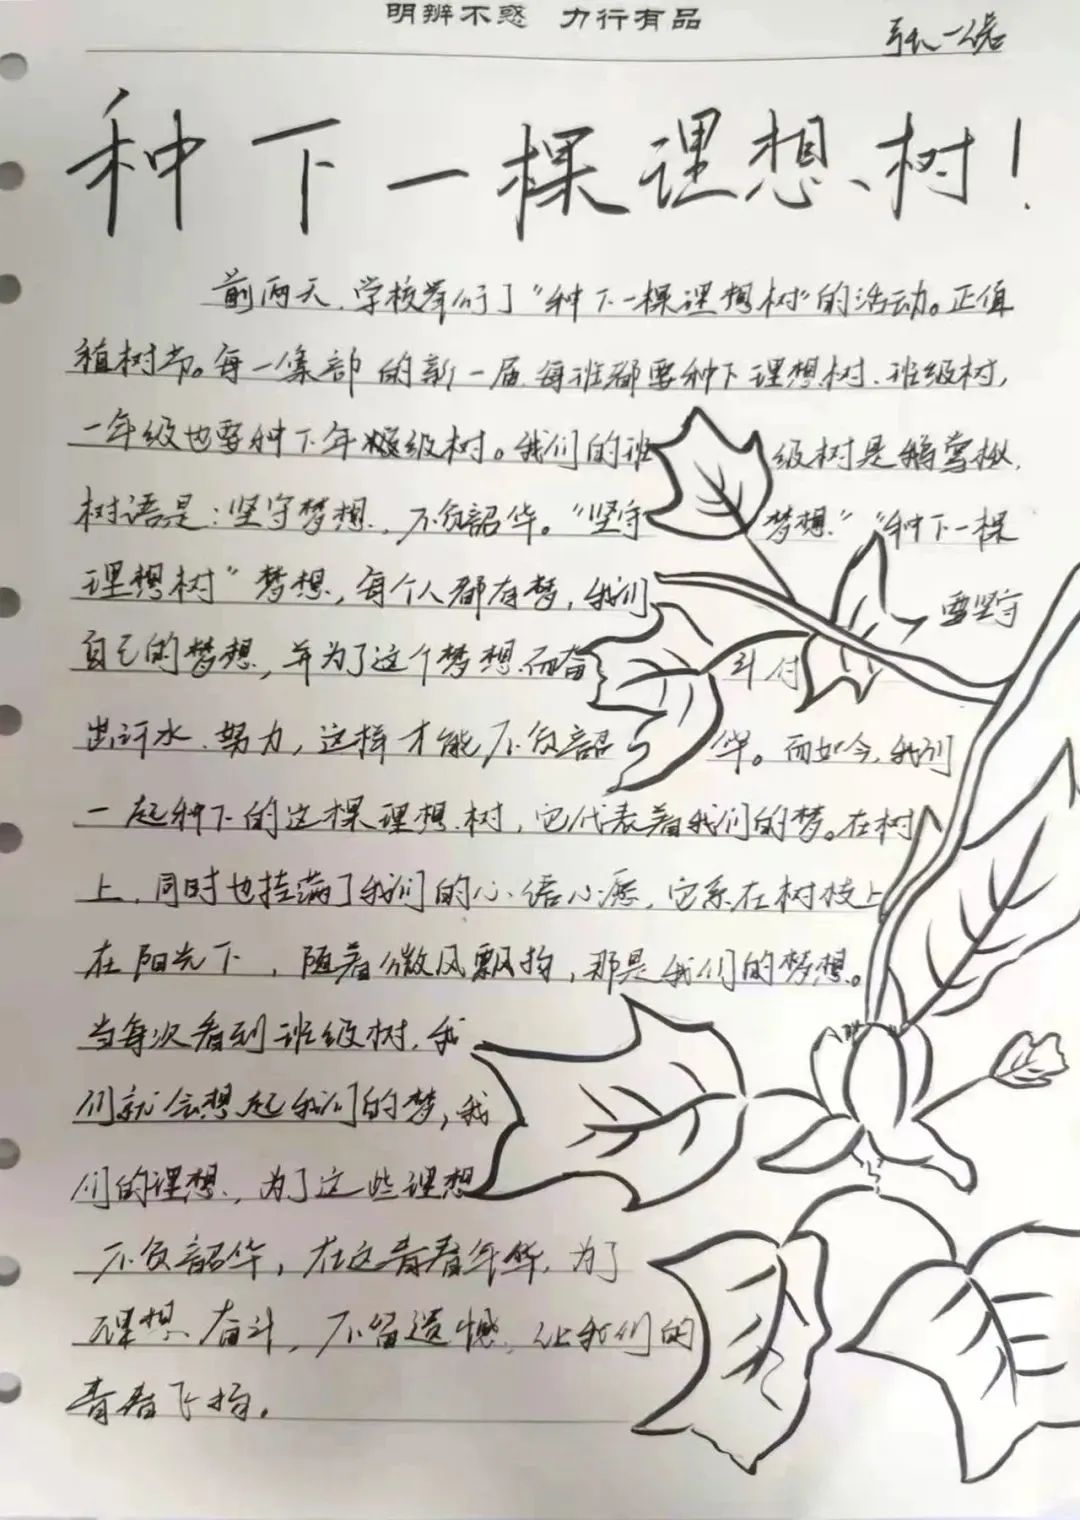 明辨不惑 力行有品
张一诺
种下一棵理想树!
前两天,学校举行了“种下一棵理想树”的活动。正值
植树节。每一集部的新一届每班都要种下理想树、班级树,
一年级也要种下年级树。我们的班级树是鹅掌楸,
树语是:坚守梦想,不负韶华。“坚守梦想”“种下一棵
理想树”梦想,每个人都有梦,我们需坚守
自己的梦想,并为了这个梦想而奋斗付
出汗水、努力,这样才能不负韶华。而如今,我们
一起种下的这棵理想树,它代表着我们的梦。在树
上,同时也挂满了我们的心语心愿,它系在树枝上
在阳光下,随着微风飘扬,那是我们的梦想。
当每次看到班级树,我
们就会想起我们的梦,我
们的理想,为了这些理想
不负韶华,在这青春年华,为了
理想奋斗,不留遗憾,让我们的
青春飞扬。